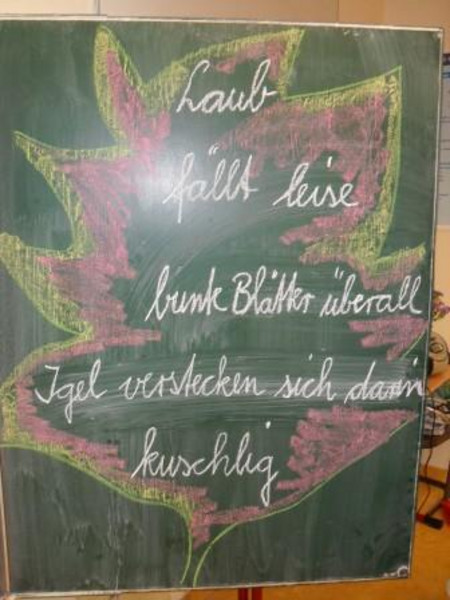 Laub
fällt leise
bunte Blätter überall
Igel verstecken sich darin
kuschlig